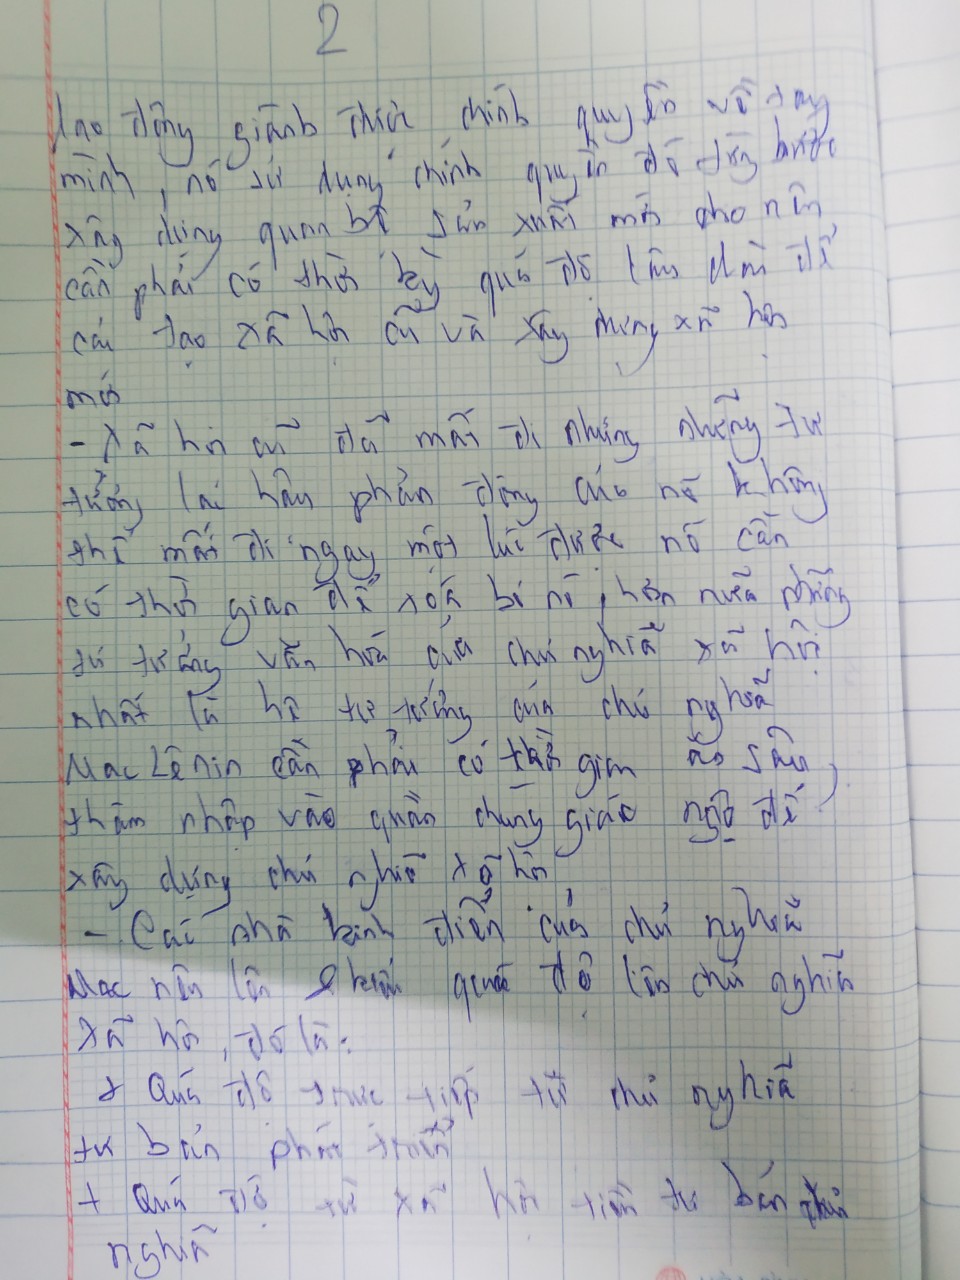 2
lao động giành được chính quyền về tay
mình, nó sử dụng chính quyền đó từng bước
xây dựng quan hệ sản xuất mới cho nên
cần phải có thời kỳ quá độ lâu dài để
cải tạo xã hội cũ và xây dựng xã hội
mới
- Xã hội cũ đã mất đi nhưng những tư
tưởng lạc hậu phản động của nó không
thể mất đi ngay một lúc được nó cần
có thời gian để xóa bỏ nó, hơn nữa những
tư tưởng văn hoá của chủ nghĩa xã hội
nhất là hệ tư tưởng của chủ nghĩa
Mac Lênin cần phải có thời gian ăn sâu,
thâm nhập vào quần chúng giác ngộ để
xây dựng chủ nghĩa xã hội
- Các nhà kinh điển của chủ nghĩa
Mac nêu lên 2 kiểu quá độ lên chủ nghĩa
xã hội, đó là:
+ Quá độ trực tiếp từ chủ nghĩa
tư bản phát triển
+ Quá độ từ xã hội tiền tư bản chủ
nghĩa